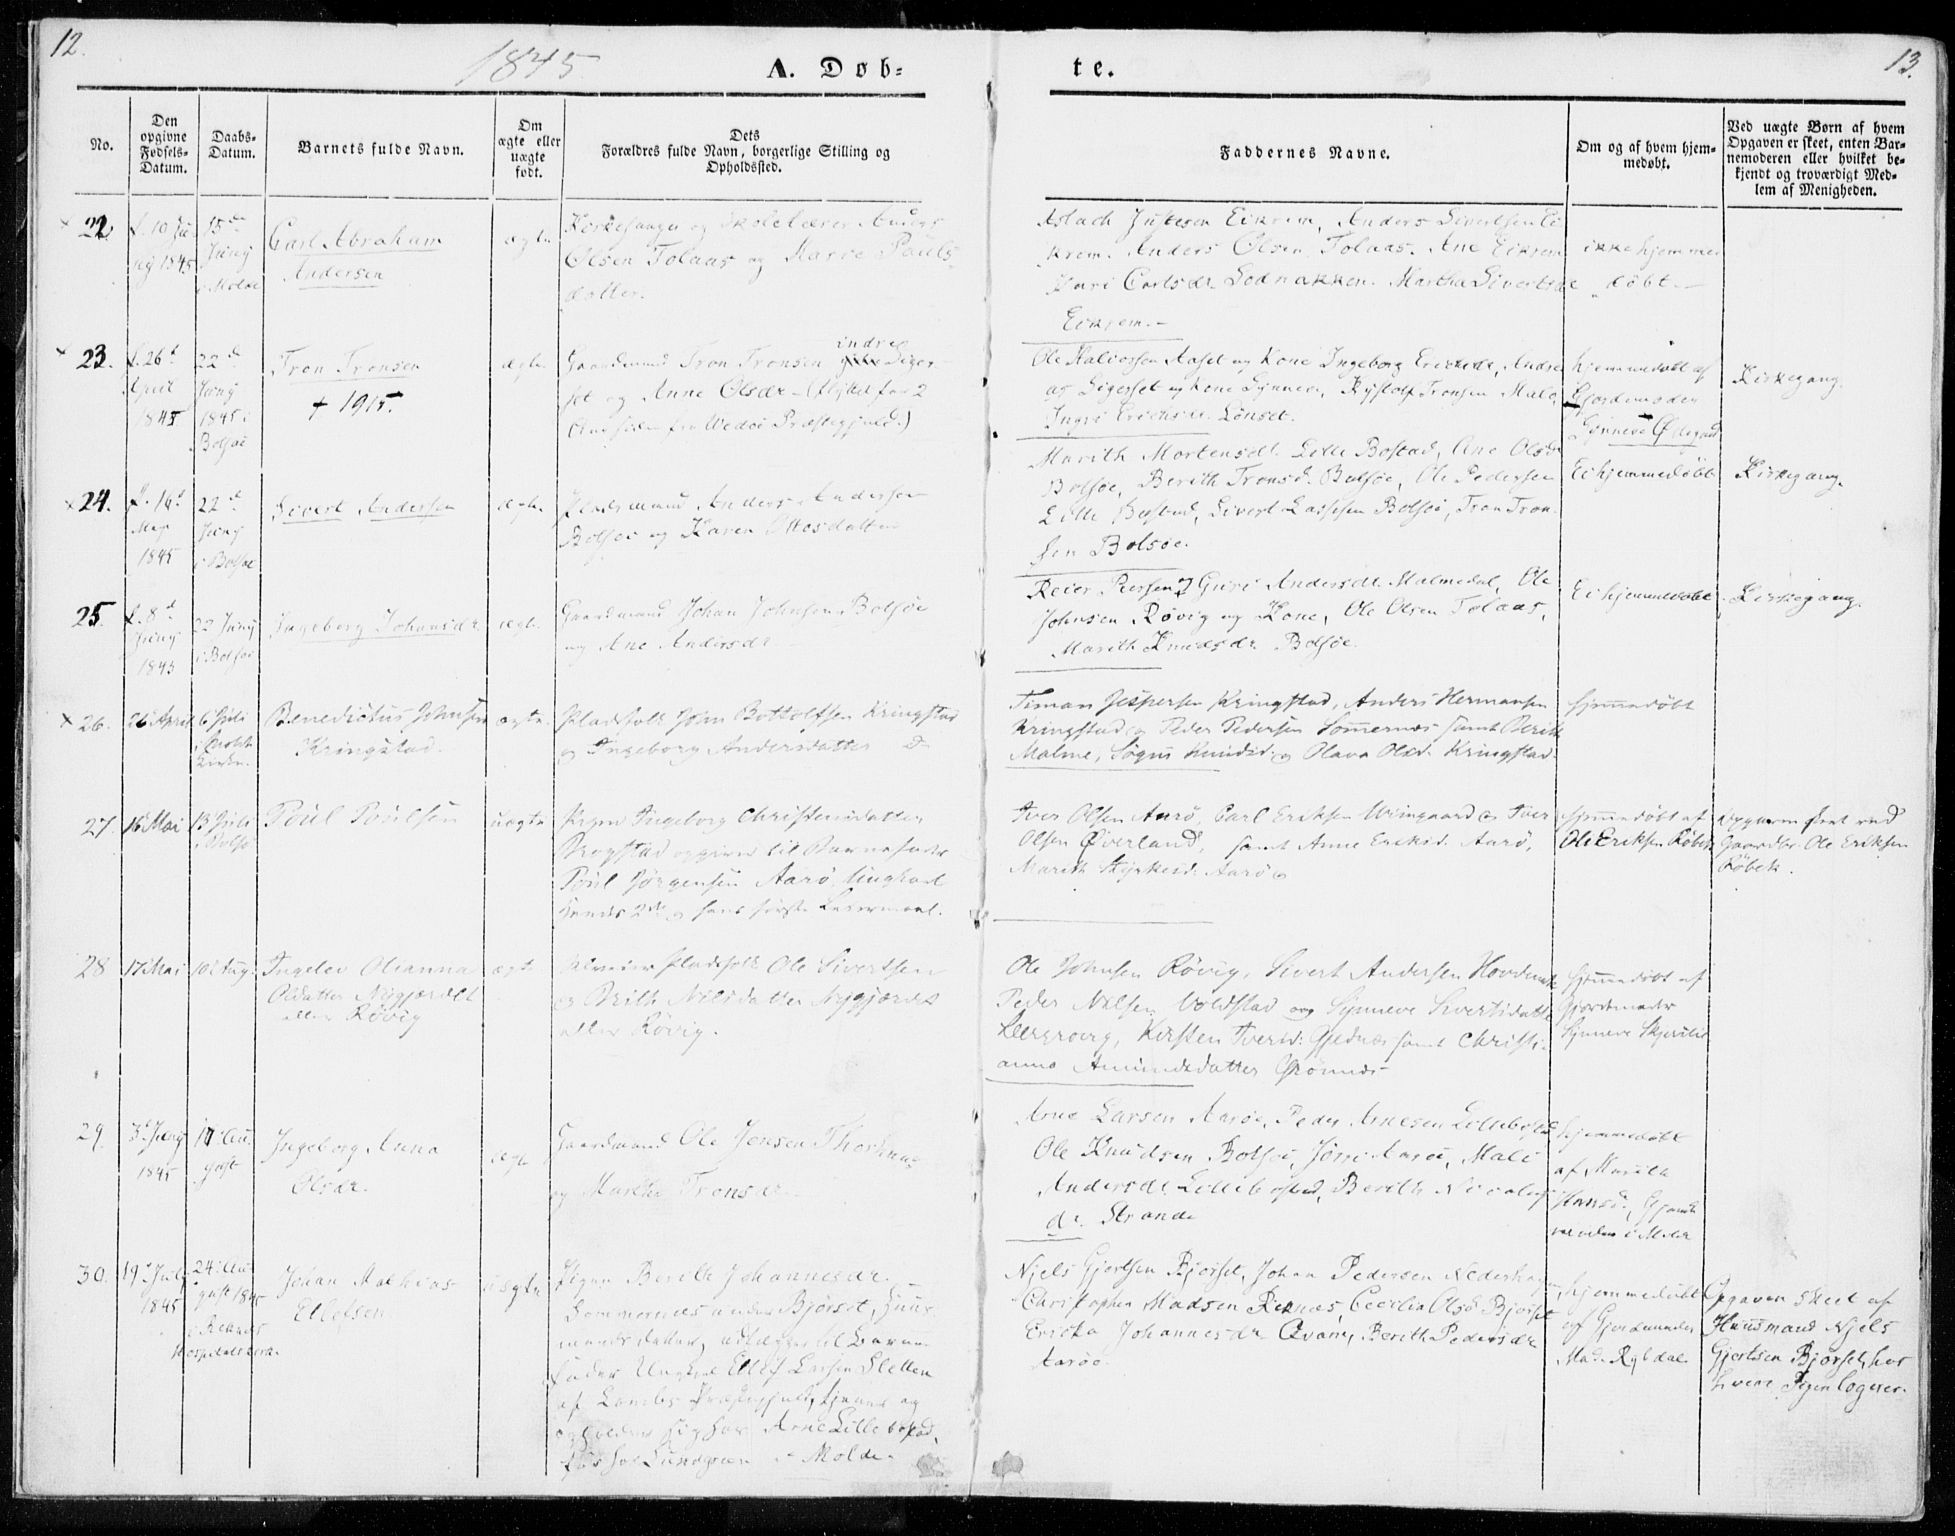 12.
1845.
A. Døb-
te.
13.
No.
Den
opgivne
Fødsels-
Datum.
Daabs-
Datum.
Barnets fulde Navn.
Om
ægte eller
uægte
født.
Dets
Forældres fulde Navn, borgerlige Stilling og
Opholdssted.
Faddernes Navne.
Om og af hvem hjem-
medøbt.
Ved uægte Børn af hvem
Opgaven er skeet, enten Bar-
nemoderen eller hvilket be-
kjendt og troværdigt Med-
lem af Menigheden.
22
f. 10 Ju-
nij 1845
15de
Junij
i Molde
Carl Abraham
Andersen
ægte
Kirkesanger og Skolelærer Anders
Olsen Tolaas og Marie Pauls-
datter.
Aslach Justesen Eikrem, Anders Sivertsen Ei
krem. Anders Olsen Tolaas. Ane Eikrem
Kari Carlsdr. Lodnakken. Martha Sivertsdr
Eikrem.
ikke hjemme
døbt.
23.
f. 26d
April
1845
22d
Junij
1845 i
Bolsøe
Tron Tronsen
† 1915.
ægte
Gaardmand Tron Tronsen indre Siger-
set og Anne Olsdr. (flyttet for 2
Aar siden fra Wedøe Præstegjeld.)
Ole Aaset og Kone Ingeborg Ericksdr, Andre
as Sigerset og Kone Synneve, Tronsen Malo,
Ingri Ericksdr. Lønset.
hjemmedøbt af
Gjordemoder
Synneve Ødegaard
Kirkegang.
24.
f. 16d
Maj
1845
22d
Junij
i Bolsøe
Sivert Andersen
ægte
Pladsmand Anders Andersen
Bolsøe og Karen Ottosdatter
Marith Mortensdr. Lille Bostad, Ane Olsdr
Bolsøe, Berith Tronsd. Bolsøe, Ole Pedersen
Lille Bostad, Sivert Lassesen Bolsøe, Tron Tron-
sen Bolsøe.
Ei hjemmedøbt
Kirkegang.
25.
f. 8d
Junij
1845
22 Junij
i Bolsøe
Ingeborg Johansdr
ægte
Gaardmand Johan Johnsen Bolsøe
og Ane Andersdr.
Reier Persen, Guri Andersdr. Malmedal, Ole
Johnsen Røvig og Kone, Ole Olsen Tolaas,
Marith Knudsdr. Bolsøe.
Ei hjemmedøbt
Kirkegang.
26.
26 April
6 Juli
i Molde
Kirke.
Benedictus Johnsen
Kringstad.
ægte.
Pladsfolk John Bottolfsen Kringstad
og Ingeborg Andersdatter
Timan Jespersen Kringstad, Anders Hermansen
Kringstad og Peder Pedersen Sommernæs samt Berith
Malme, Knudsd. og Olava Olsd. Kringstad
hjemmedøbt
27.
16 Mai
13 Juli
i Bolsø
Poul Poulsen
uægte
Pigen Ingeborg Christensdatter
opgiver til Barnefader
Poul Jørgensen Aarø Ungkarl
hendes 2det og hans første Leiermaal.
Iver Olsen Aarø, Carl Eriksen og Iver
Olsen Øverland, samt Anne Eriksd. Aarø,
Marith Aarø
hjemmedøbt af
Ole Eriksen Røbek
Opgaven skeet ved
Gaardbr. Ole Eriksen
Røbek.
28
17 Mai
10 Aug.
Ingelev Olianna
Olsdatter Nygjærdet
eller Røvig
ægte
Pladsfolk Ole Sivertsen
og Brith Nilsdatter Nygjærdet
eller Røvig.
Ole Johnsen Røvig, Sivert Andersen
Peder Nilsen Voldstad og Synneve Sivertsdatter
Kirsten Iversd. samt Christi-
anna Amundsdatter Grønnæs
hjemmedøbt af
Gjordemoder
Synneve
29.
3 Junij
1845
17 Au-
gust
Ingeborg Anna
Olsdr.
ægte
Gaardmand Ole Jensen
og Marthe Tronsdr.
Arne Larsen Aarøe, Peder Arnesen Lillebostad
Ole Knudsen Bolsøe, Aarøe, Mali
Andersdr. Lillebostad, Berith Nicolai
dr. Strande
hjemmedøbt
af Marith
Hansdr,
i Molde
30.
19 July
1845
24 Au-
gust 1845
i Reknes
Hospitalskirke.
Johan Mathias
Ellefsen
uægte
Pigen Berith Johannesdr.
Sommernes under Bjørset, Huus-
mands Datter, udlægger til Barne-
fader Ungkarl Ellef Larsen Sletten
af Lombs Præstegjeld, tjener og
opholder sig hos Arne Lillebostad,
i Molde.
Niels Gjertsen Bjørset, Johan Pedersen
Christopher Madsen Reknes, Cecilia Olsd. Bjørset
Ericka Johannesdr. Berith Pedersdr.
Aarøe
hjemmedøbt
af Gjordemoder
Mad. Rybdal
Opgaven skeet af
Huusmand Niels
Gjertsen Bjørset, hos
hvem Pigen logerer.